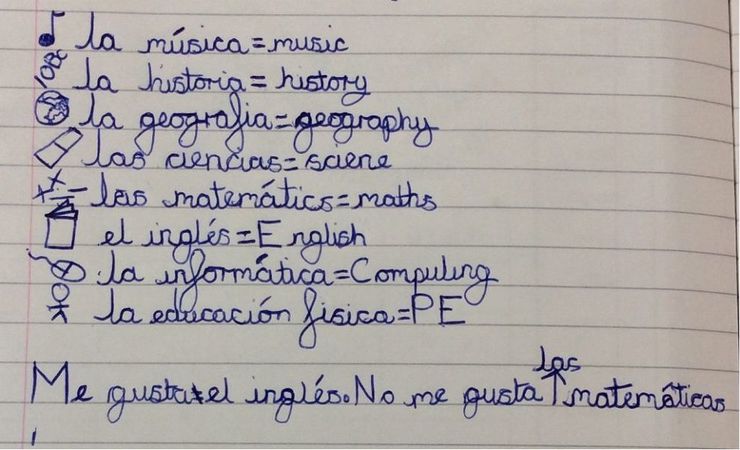 la música=music
1086 la historia=history
la geografia=geography
las ciencias=sciene
las matemátics=maths
el inglés=English
la informática=Computing
la educación fisica=PE
Me gusta el inglés. No me gusta las matemáticas